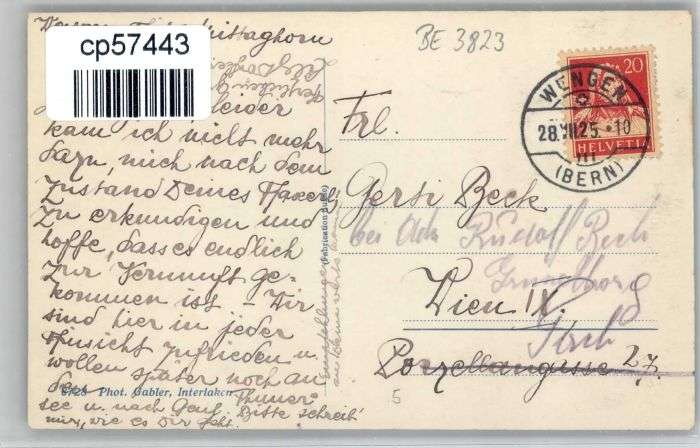 cp57443
BE 3823
20
HELVETIA
WENGEN
28.VII.25.-10
III
(BERN)
leider
kam ich nicht mehr
dazu, mich nach dem
Zustand Deines
zu erkundigen und
hoffe, dass es endlich
zur Vernunft ge-
kommen ist. Wir
sind hier in jeder
Hinsicht zufrieden u.
wollen später noch an
den Thuner
see u. nach Genf. Bitte schreib'
mir, wie es Dir geht.
6728 Phot. Gabler, Interlaken
Frl.
Gersi Beck
bei Rudolf Beck
Wien IX.
Porzellangasse 27
5